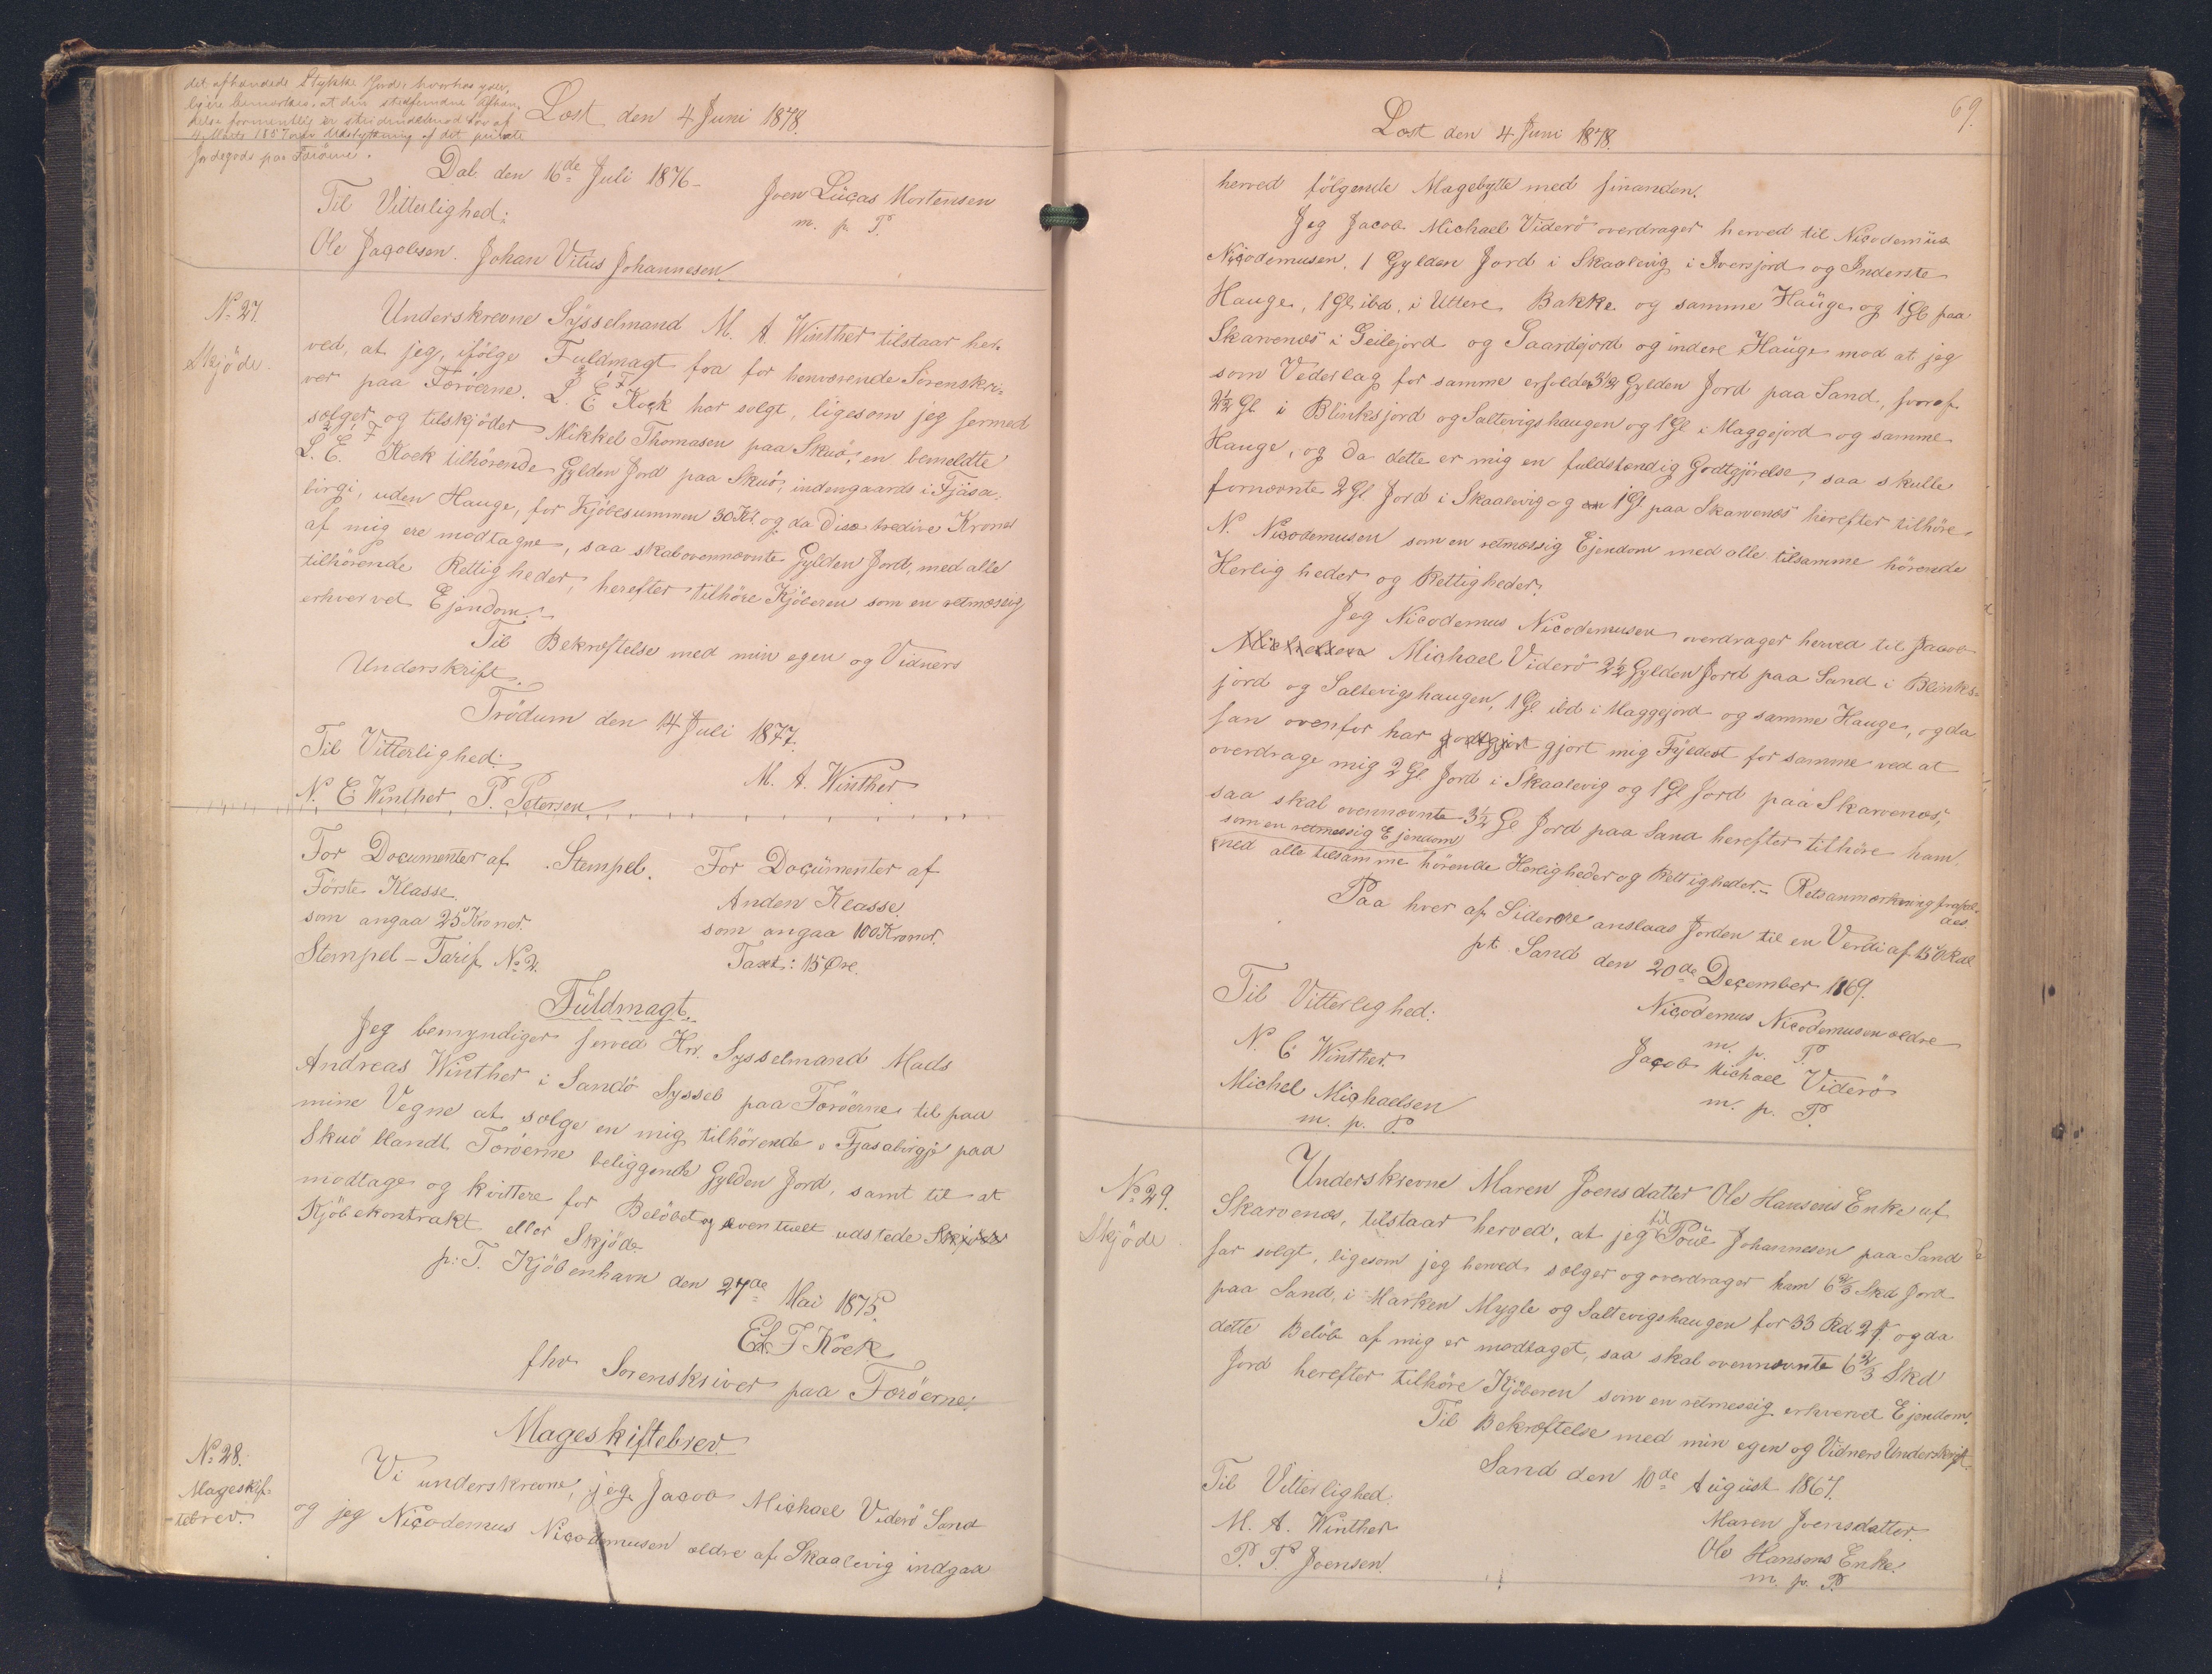 det afhændede Stykke Jord, hvorhos yder-
ligere bemærkes, at den stedfundne Afhæn-
delse formentlig er stridende mod Lov af
4 Marts 1857 om Udstykning af det private
Jordegods paa Færöerne.
Læst den 4 Juni 1878.
Dal den 16de Juli 1876
Joen Lücas Mortensen
m. p. P.
Til Vitterlighed:
Ole Jacobsen. Johan Vitus Johannesen.
No 27.
Skjöde
Underskrevne Sysselmand M. A. Winther tilstaar her-
ved, at jeg, ifölge Fuldmagt fra for henværende Sörenskri-
ver paa Færöerne. L. E. F. Kock har solgt, ligesom jeg herved
sælger og tilskjöder Mikkel Thomasen paa Skuö, en bemeldte
L. E. F. Kock tilhörende Gylden Jord paa Skuö, indengaards i Fjåsa-
birgi, uden Hauge, for Kjöbesummen 30 Kr. og da disse tredive Kroner
af mig ere modtagne, saa skal ovennævnte Gylden Jord, med alle
tilhörende Rettigheder, herefter tilhöre Kjöberen som en retmæssig
erhvervet Ejendom.
Til Bekræftelse med min egen og Vidners
Underskrift.
Tródum den 14 Juli 1877.
Til Vitterlighed:
M. A. Winther
N. E. Winther P. Petersen
For Documenter af Stempel. For Documenter af
Förste Klasse Anden Klasse
som angaa 25 Kroner. som angaa 100 Kroner.
Stempel-Tarif No 2. Taxt: 15 Øre.
Füldmagt.
Jeg bemyndiger herved Hr. Sysselmand Mads
Andreas Winther i Sandö Syssel paa Færöerne til paa
mine Vegne at sælge en mig tilhörende i Fjasabirgje paa
Skuö blandt Færöerne beliggende Gylden Jord, samt til at
modtage og kvittere for Belöbet og eventuelt udstede Skjöde
Kjöbekontrakt eller Skjöde.
p: T. Kjöbenhavn den 27de Mai 1875.
E. L. F. Kock
fhv. Sorenskriver paa Færöerne.
No 28.
Mageskif-
tebrev.
Mageskiftebrev.
Vi underskrevne, jeg Jacob Michael Viderö Sand
og jeg Nicodemus Nicodemusen ældre af Skaalevig indgaa
69.
Læst den 4 Juni 1878.
herved fölgende Magebytte med hinanden.
Jeg Jacob Michael Viderö overdrager herved til Nicodemüs
Nicodemusen, 1 Gylden Jord i Skaalevig i Iversjord og Inderste
Hauge, 1 Gl. ibd. i Uttere Bakke og samme Haüge og 1 Gl. paa
Skarvenæs i Geilejord og Gaardejord og indere Haüge mod at jeg
som Vederlag for samme erholder 3½ Gylden Jord paa Sand, hvoraf
2½ Gl. i Blinksjord og Saltevigshaugen og 1 Gl i Maggejord og samme
Hauge, og da dette er mig en fuldstændig Godtgjörelse, saa skulle
fornævnte 2 Gl. Jord i Skaalevig og en 1 Gl. paa Skarvenæs herefter tilhöre
N. Nicodemusen som en retmæssig Ejendom med alle tilsamme hörende
Herligheder og Rettigheder.
Jeg Nicodemus Nicodemusen overdrager herved til Jacob
Michelsen Michael Viderö 2½ Gylden Jord paa Sand i Blinks-
jord og Saltevigshaugen, 1 Gl. ibd i Maggejord og samme Hauge, og da
han ovenfor har godtgjort gjort mig Fyldest for samme ved at
overdrage mig 2 Gl. Jord i Skaalevig og 1 Gl Jord paa Skarvenæs,
saa skal ovennævnte 3½ Gl Jord paa Sand herefter tilhöre ham
som en retmæssig Ejendom
med alle tilsamme hörende Herligheder og Rettigheder.
Retsanmærkning frafal-
des.
Paa hver af Siderne anslaas Jorden til en Verdi af 150 Rdl
pt. Sand den 20de December 1869.
Til Vitterlighed:
Nicodemus Nicodemusen ældre
m. p. P.
N. E Winther.
Jacob Michael Viderö
m. p. P.
Michel Michaelsen
m. p. P.
No 29.
Skjöde
Underskrevne Maren Joensdatter Ole Hansens Enke af
Skarvenæs, tilstaar herved, at jeg til Poül Johannesen paa Sand
har solgt, ligesom jeg herved sælger og overdrager ham 6 2/3 Skd Jord
paa Sand, i Marken Mygle og Saltevigshaugen for 33 Rd 2 , og da
dette Belöb af mig er modtaget, saa skal ovennævnte 6 2/3 Skd
Jord herefter tilhöre Kjöberen som en retmessig erhvervet Ejendom.
Til Bekræftelse med min egen og Vidners Underskrift.
Sand den 10de August 1867.
Til Vitterlighed.
Maren Joensdatter
M. A. Winther
Ole Hansens Enke.
m. p. P.
P. P. Joensen.